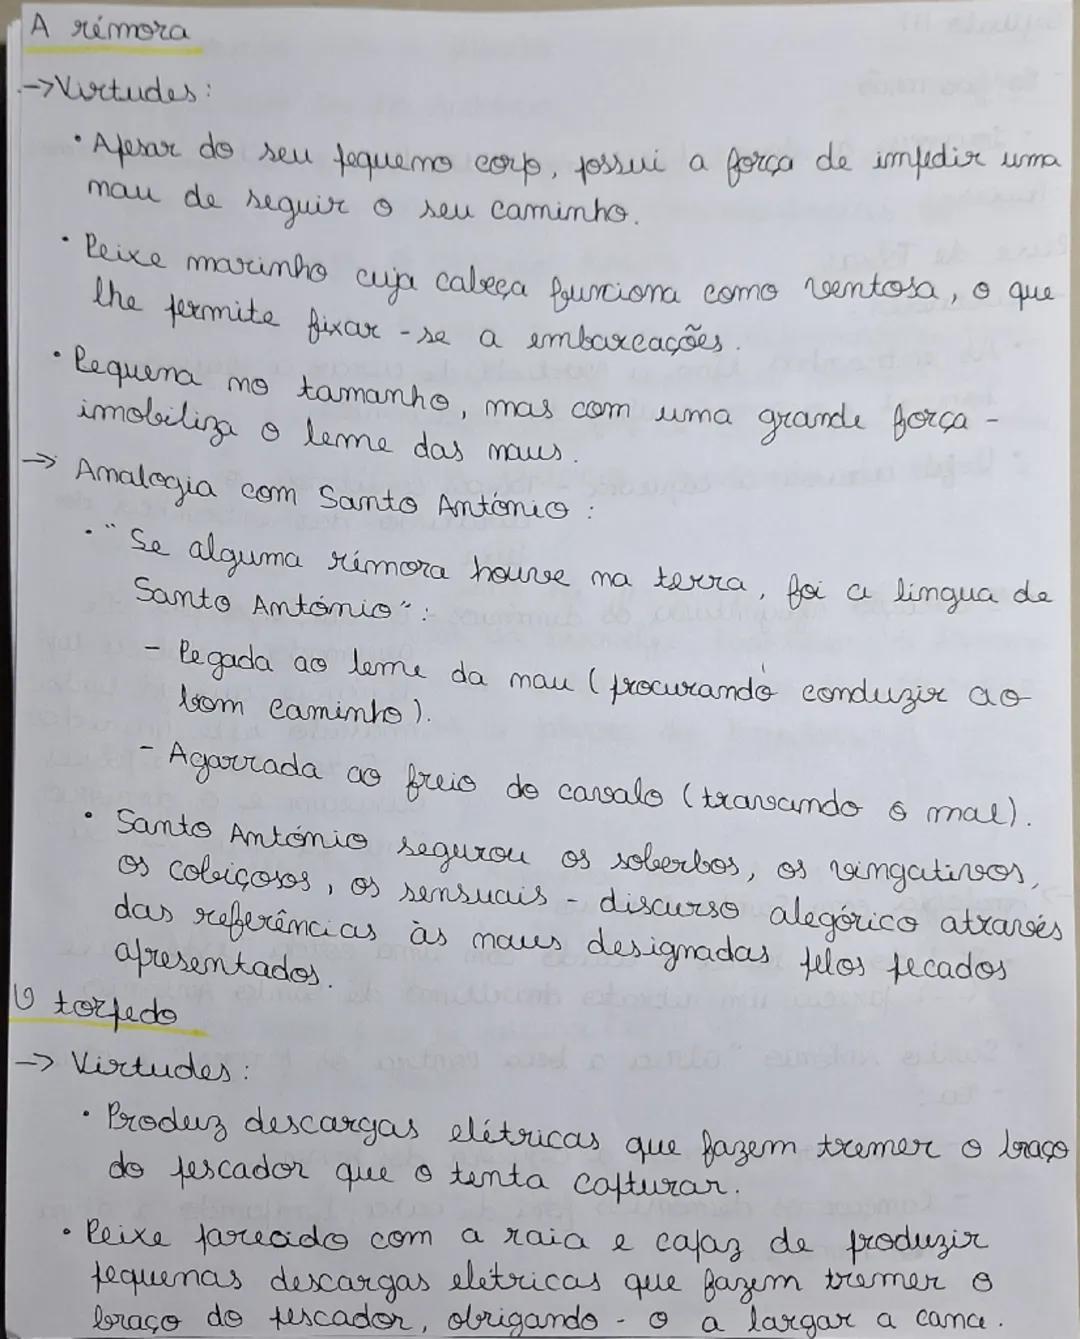 A rémora
→ Virtudes:
• Apesar do seu pequeno corpo, possui a força de impedir uma
nau de seguir o seu caminho.
• Peixe marinho cuja cabeça funciona como ventosa, o que
lhe permite fixar-se a embarcações.
• Pequena no tamanho, mas com uma grande força -
imobiliza o leme das naus.
→ Analogia com Santo António:
• "Se alguma rémora houve na terra, foi a língua de
Santo António":
- Pegada ao leme da nau (procurando conduzir ao
bom caminho).
- Agarrada ao freio do cavalo (travando o mal).
• Santo António segurou os soberbos, os vingativos,
os cobiçosos, os sensuais - discurso alegórico através
das referências às naus designadas pelos pecados
apresentados.
O torpedo
→ Virtudes:
• Produz descargas elétricas que fazem tremer o braço
do pescador que o tenta capturar.
• Peixe parecido com a raia e capaz de produzir
pequenas descargas elétricas que fazem tremer o
braço do pescador, obrigando-o a largar a cana.